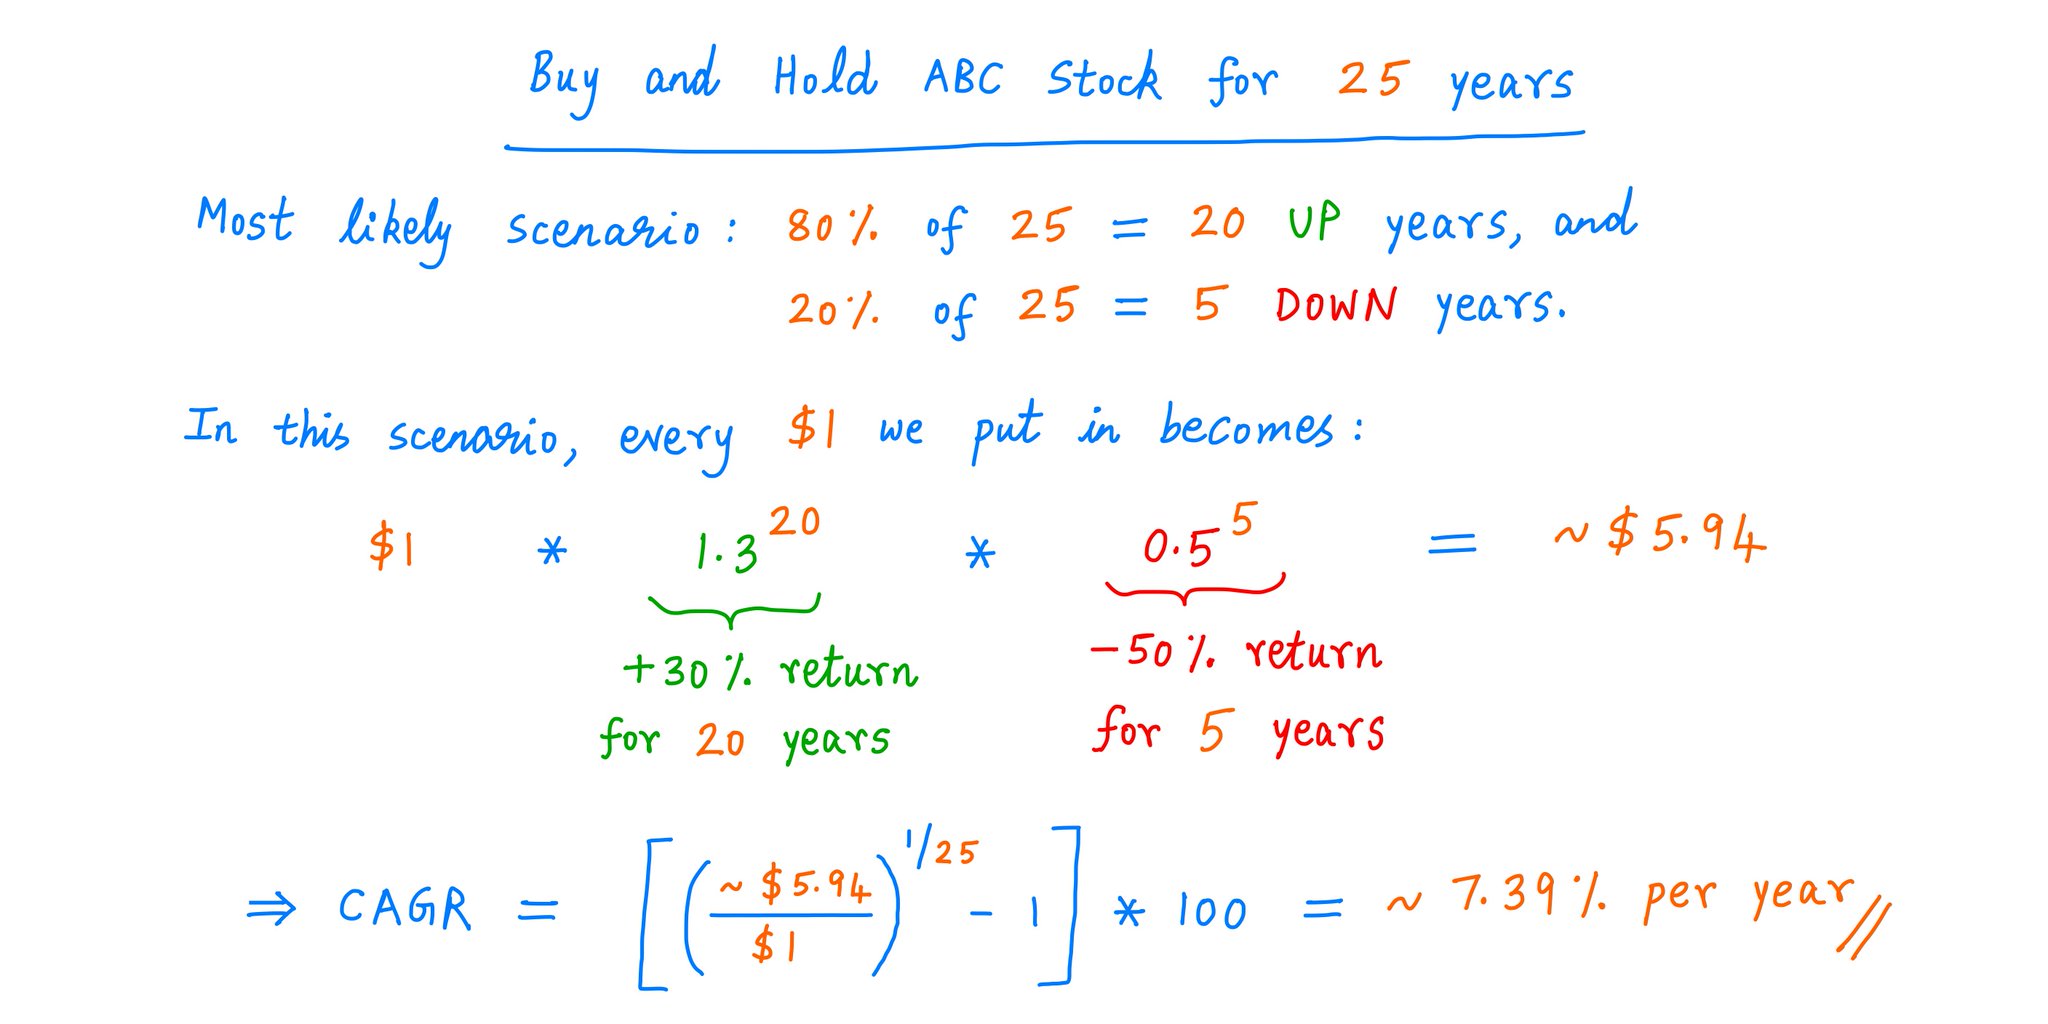 Buy and Hold ABC Stock for 25 years
Most likely scenario: 80% of 25 = 20 UP years, and
20% of 25 = 5 DOWN years.
In this scenario, every $1 we put in becomes:
$1 * 1.3^20 * 0.5^5 = ~ $5.94
+30% return
for 20 years
-50% return
for 5 years
⇒ CAGR = [(~ $5.94 / $1)^1/25 - 1] * 100 = ~ 7.39% per year //